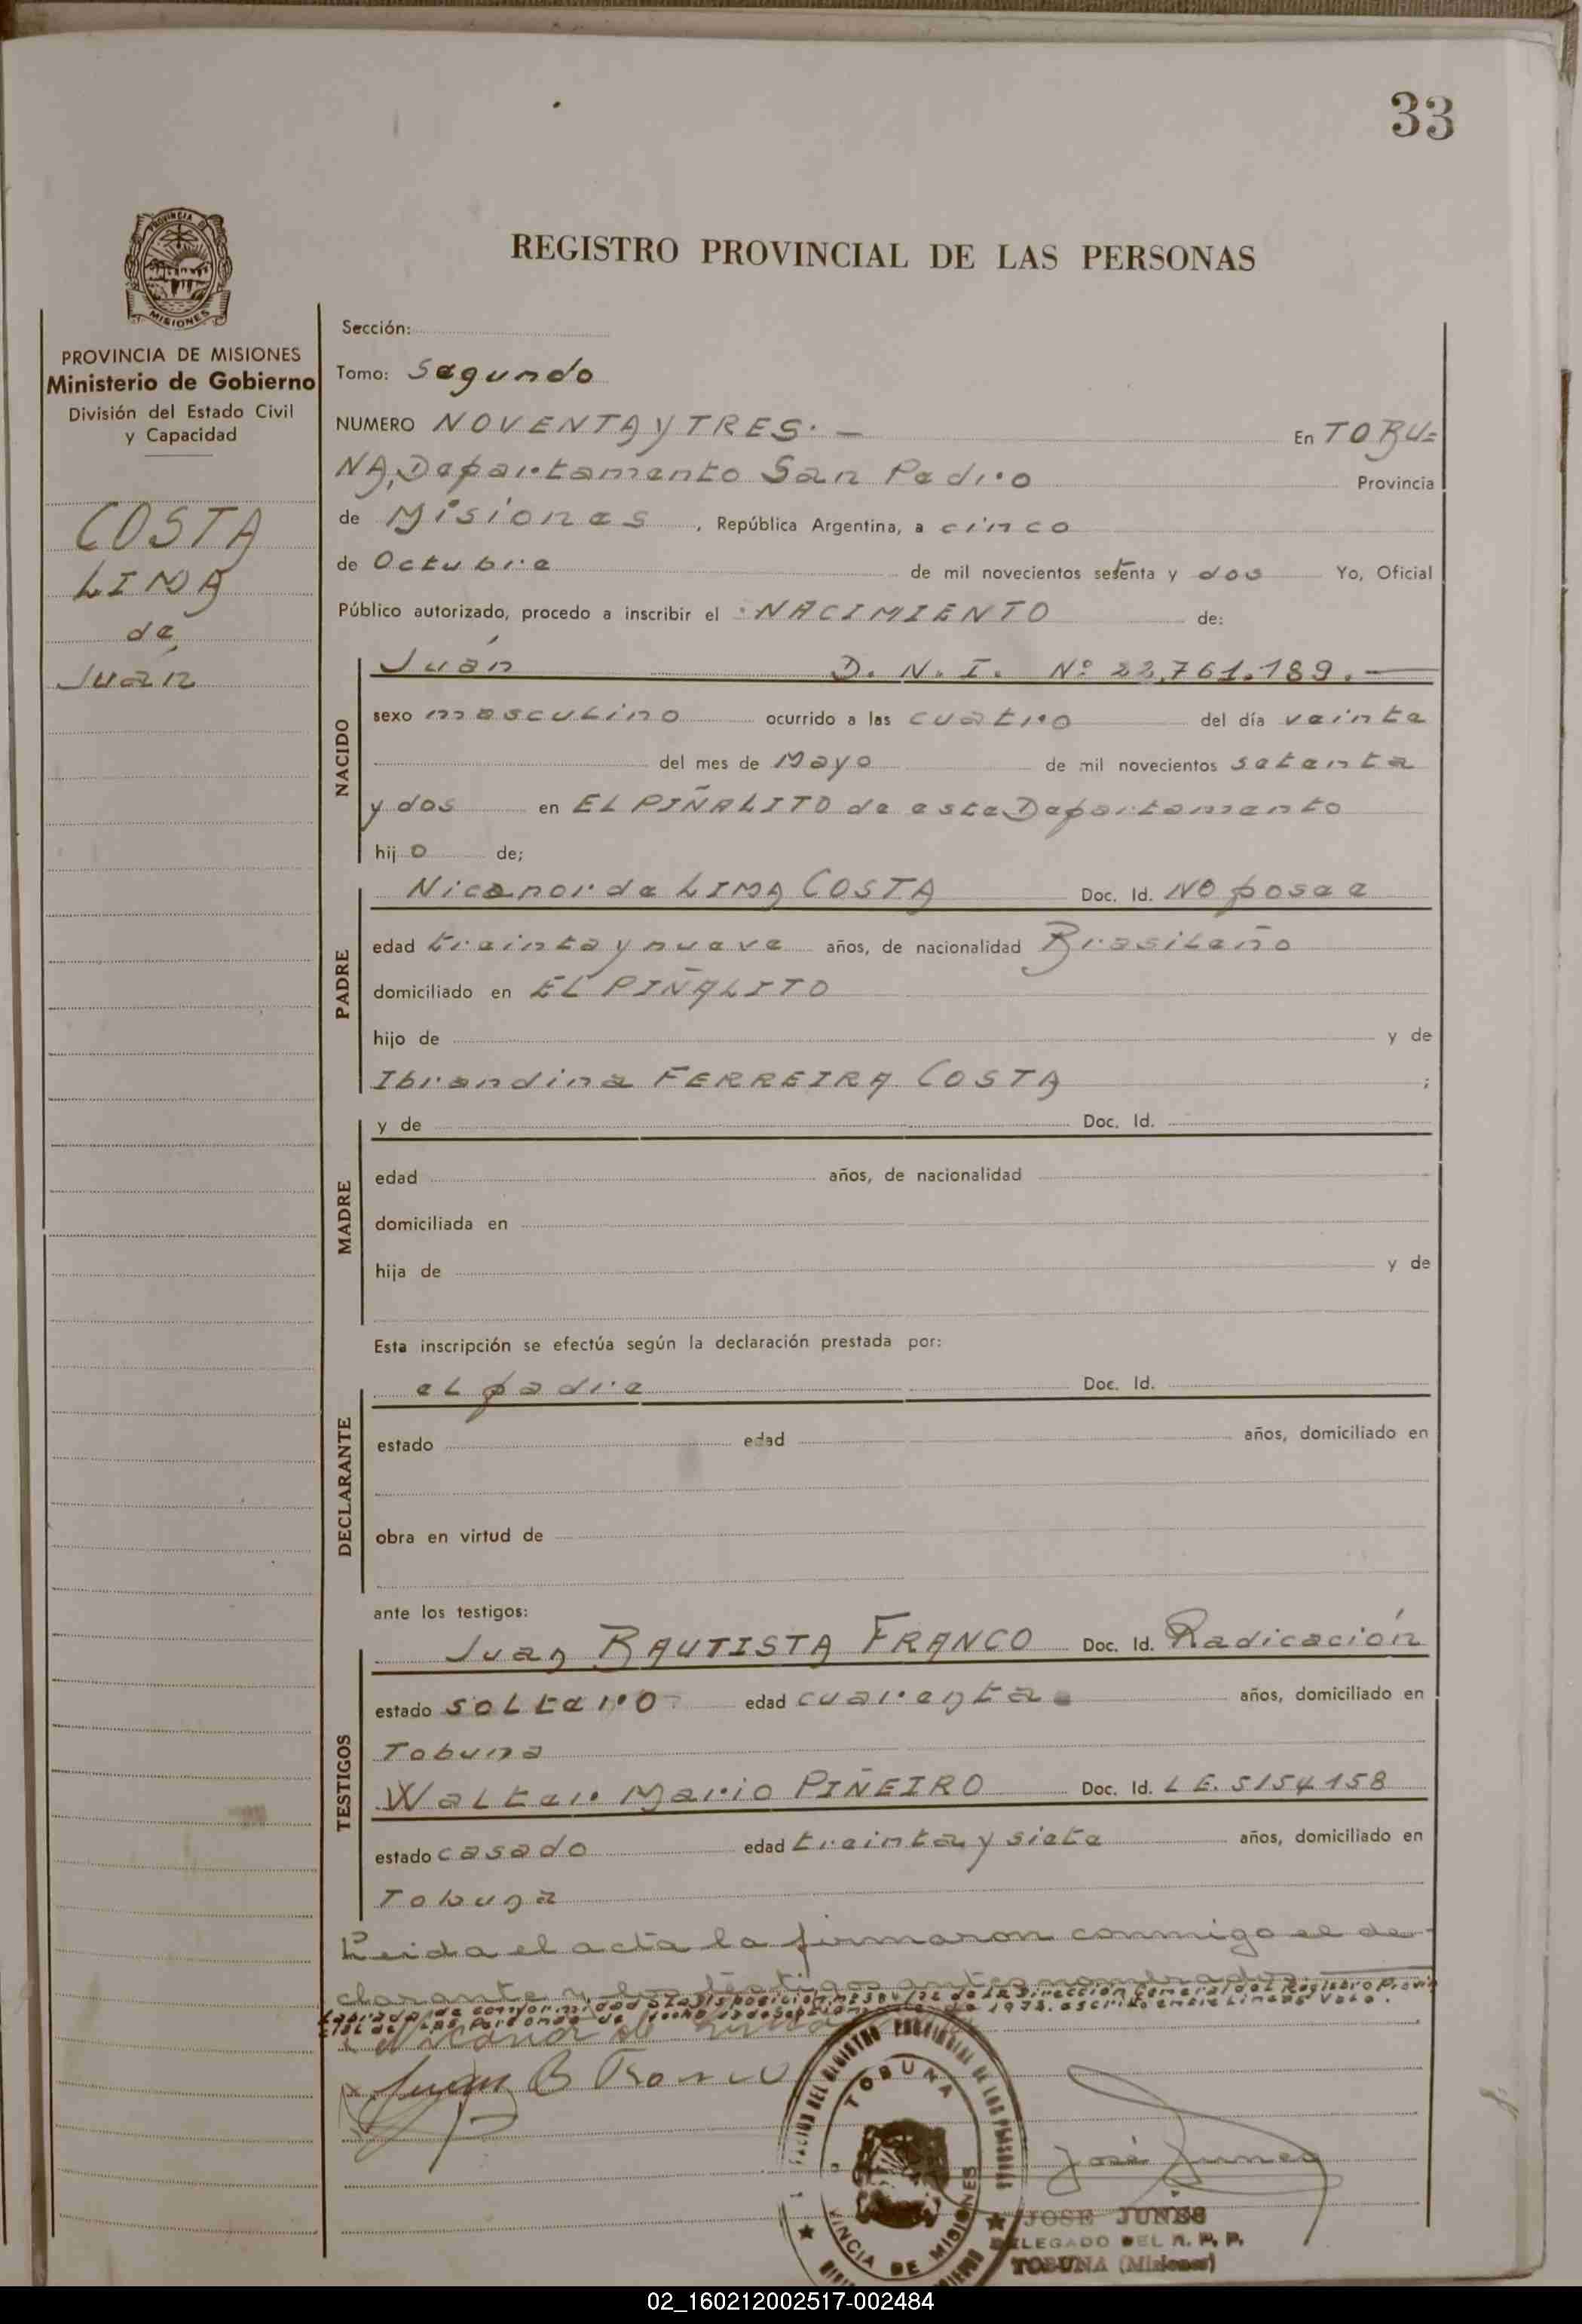 33
REGISTRO PROVINCIAL DE LAS PERSONAS
PROVINCIA
MISIONES
PROVINCIA DE MISIONES
Ministerio de Gobierno
División del Estado Civil
y Capacidad
COSTA
LIMA
de
Juán
Sección:
Tomo: Segundo
NUMERO NOVENTA y TRES.- En TOBU=
NA, Departamento San Pedro Provincia
de Misiones, República Argentina, a cinco
de Octubre de mil novecientos setenta y dos Yo, Oficial
Público autorizado, procedo a inscribir el NACIMIENTO de:
NACIDO
Juán D. N. I. Nº 22.761.189.-
sexo masculino ocurrido a las cuatro del día veinte
del mes de Mayo de mil novecientos setenta
y dos en EL PIÑALITO de este Departamento
hijo de;
PADRE
Nicanor de LIMA COSTA Doc. Id. NO posee
edad treinta y nueve años, de nacionalidad Brasileño
domiciliado en EL PIÑALITO
hijo de y de
Ibrandina FERREIRA COSTA ;
MADRE
y de Doc. Id.
edad años, de nacionalidad
domiciliada en
hija de y de
Esta inscripción se efectúa según la declaración prestada por:
DECLARANTE
el padre Doc. Id.
estado edad años, domiciliado en
obra en virtud de
ante los testigos:
TESTIGOS
Juan BAUTISTA FRANCO Doc. Id. Radicación
estado soltero edad cuarenta años, domiciliado en
Tobuna
Walter Mario PIÑEIRO Doc. Id. L E. 5154158
estado casado edad treinta y siete años, domiciliado en
Tobuna
Leida el acta la firmaron conmigo el de-
clarante y los testigos antes nombrados.
Labrada de conformidad a la Disposición Nº 584/72 de la Dirección General del Registro Provin
cial de las Personas de fecha de 1972. escrito entre lineas Vale.
Nicanor de Lima
Juan B Franco
TOBUNA
VINCIA DE MISIONES
José Junes
JOSE JUNES
DELEGADO DEL R. P. P.
TOBUNA (Misiones)
02_160212002517-002484